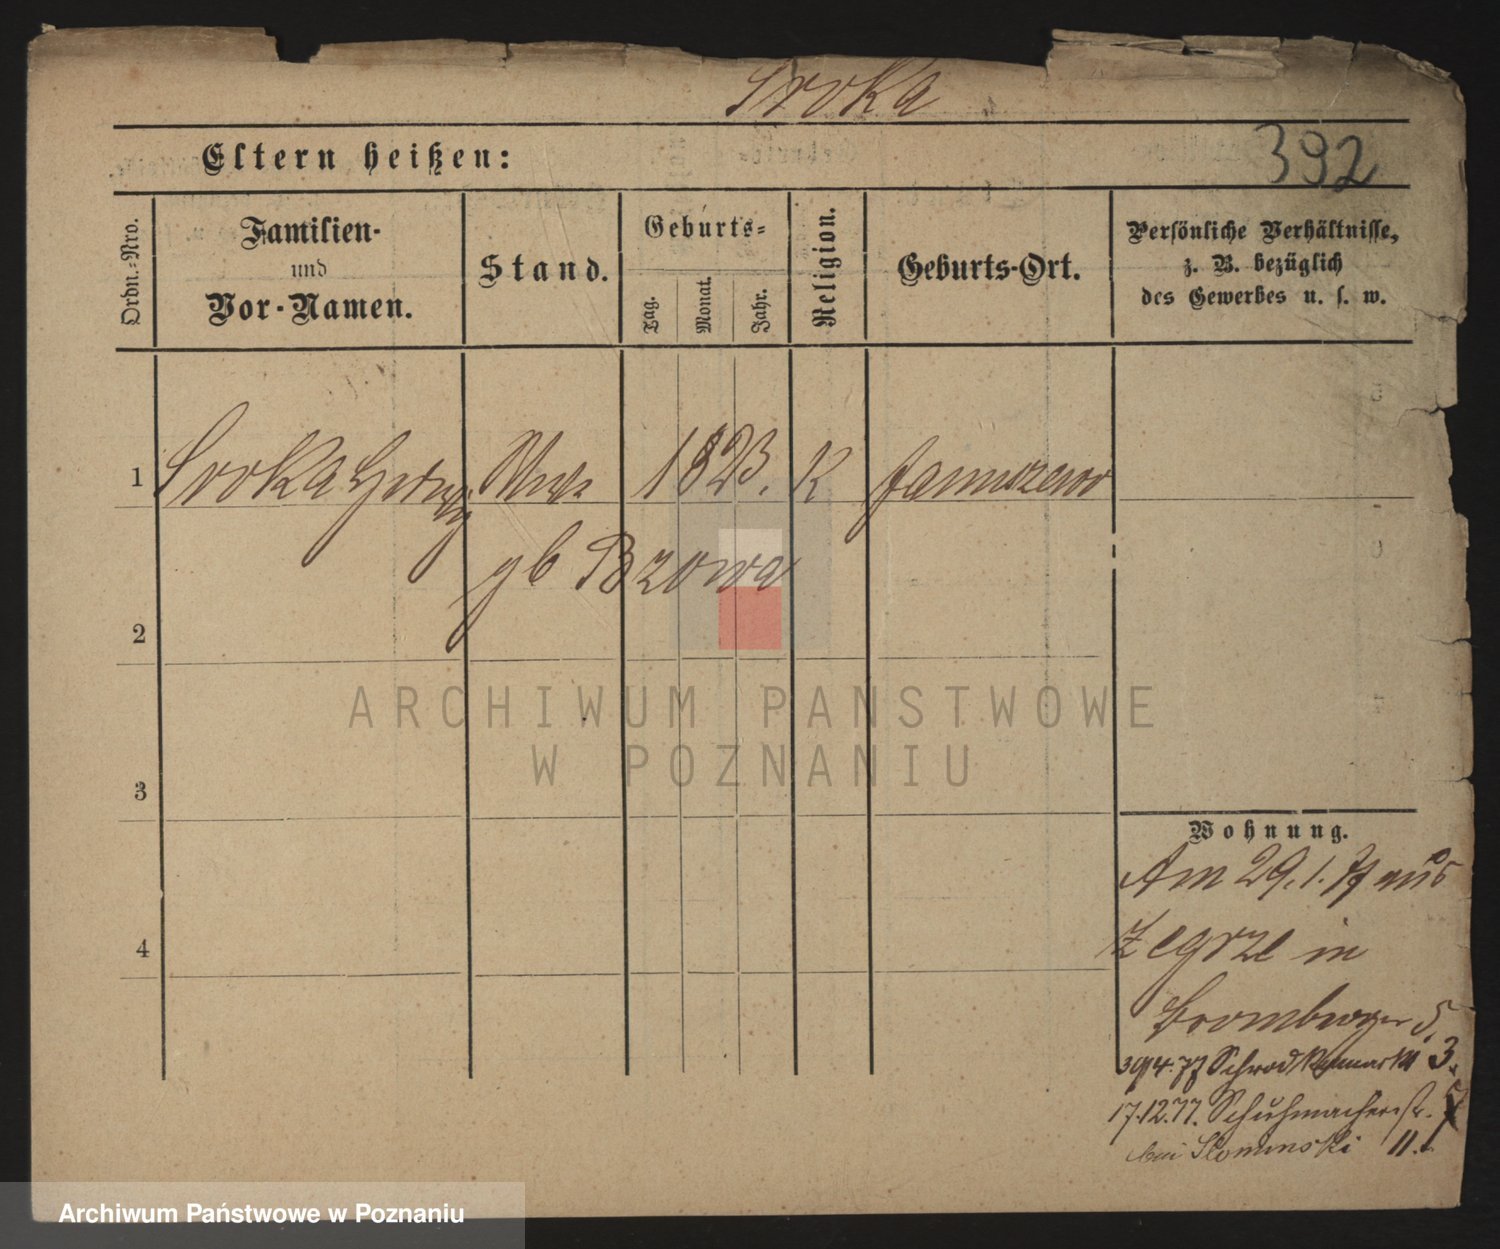 Sroka
392
Eltern heißen:
Ordn.-Nro.
Familien-
und
Vor-Namen.
Stand.
Geburts-
Tag.
Monat.
Jahr.
Religion.
Geburts-Ort.
Persönliche Verhältnisse,
z. B. bezüglich
des Gewerbes u. s. w.
1 Sroka Hedwig Wwe 1823. K Januszewo
gb Bzowa
2
3
4
Wohnung.
Am 29.1.77 aus
Zegrze in
Bromberger 5
30/4.77 Schrodkamarkt 3.
17.12.77. Schuhmacherstr.
bei Slominski 11.
ARCHIWUM PAŃSTWOWE
W POZNANIU
Archiwum Państwowe w Poznaniu